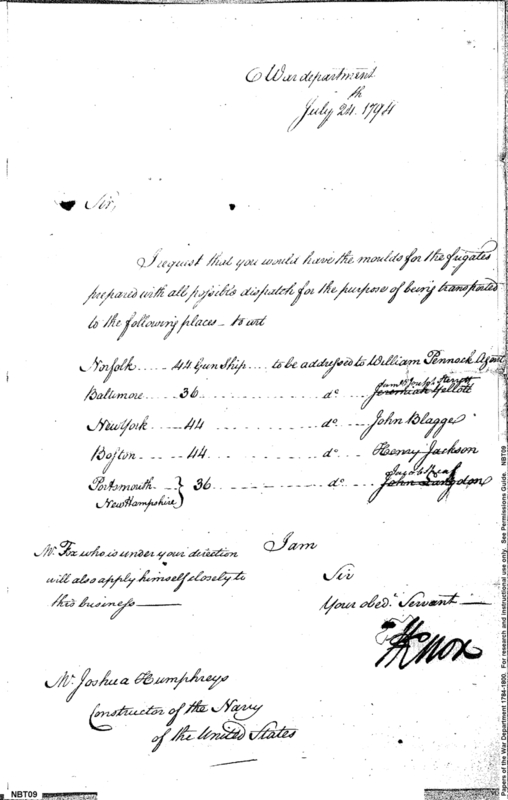 War department
July 24th. 1794
Sir,
I request that you would have the moulds for the frigates
prepared with all possible dispatch for the purpose of being transported
to the following places — to wit
Norfolk .... 44 Gun Ship .... to be addressed to William Pennock Agent
Saml & Joseph Sterrett
Baltimore .... 36 .... do. Jeremiah Yellott
New York .... 44 .... do. John Blagge
Boston .... 44 .... do. Henry Jackson
Portsmouth New Hampshire } 36 .... do. John Langdon
Mr. Fox who is under your direction
will also apply himself closely to
this business —
I am
Sir
Your obed. Servant —
HKnox
Mr. Joshua Humphreys
Constructor of the Navy
of the United States
NBT09
Papers of the War Department 1784-1800. For research and instructional use only. See Permissions Guide. NBT09